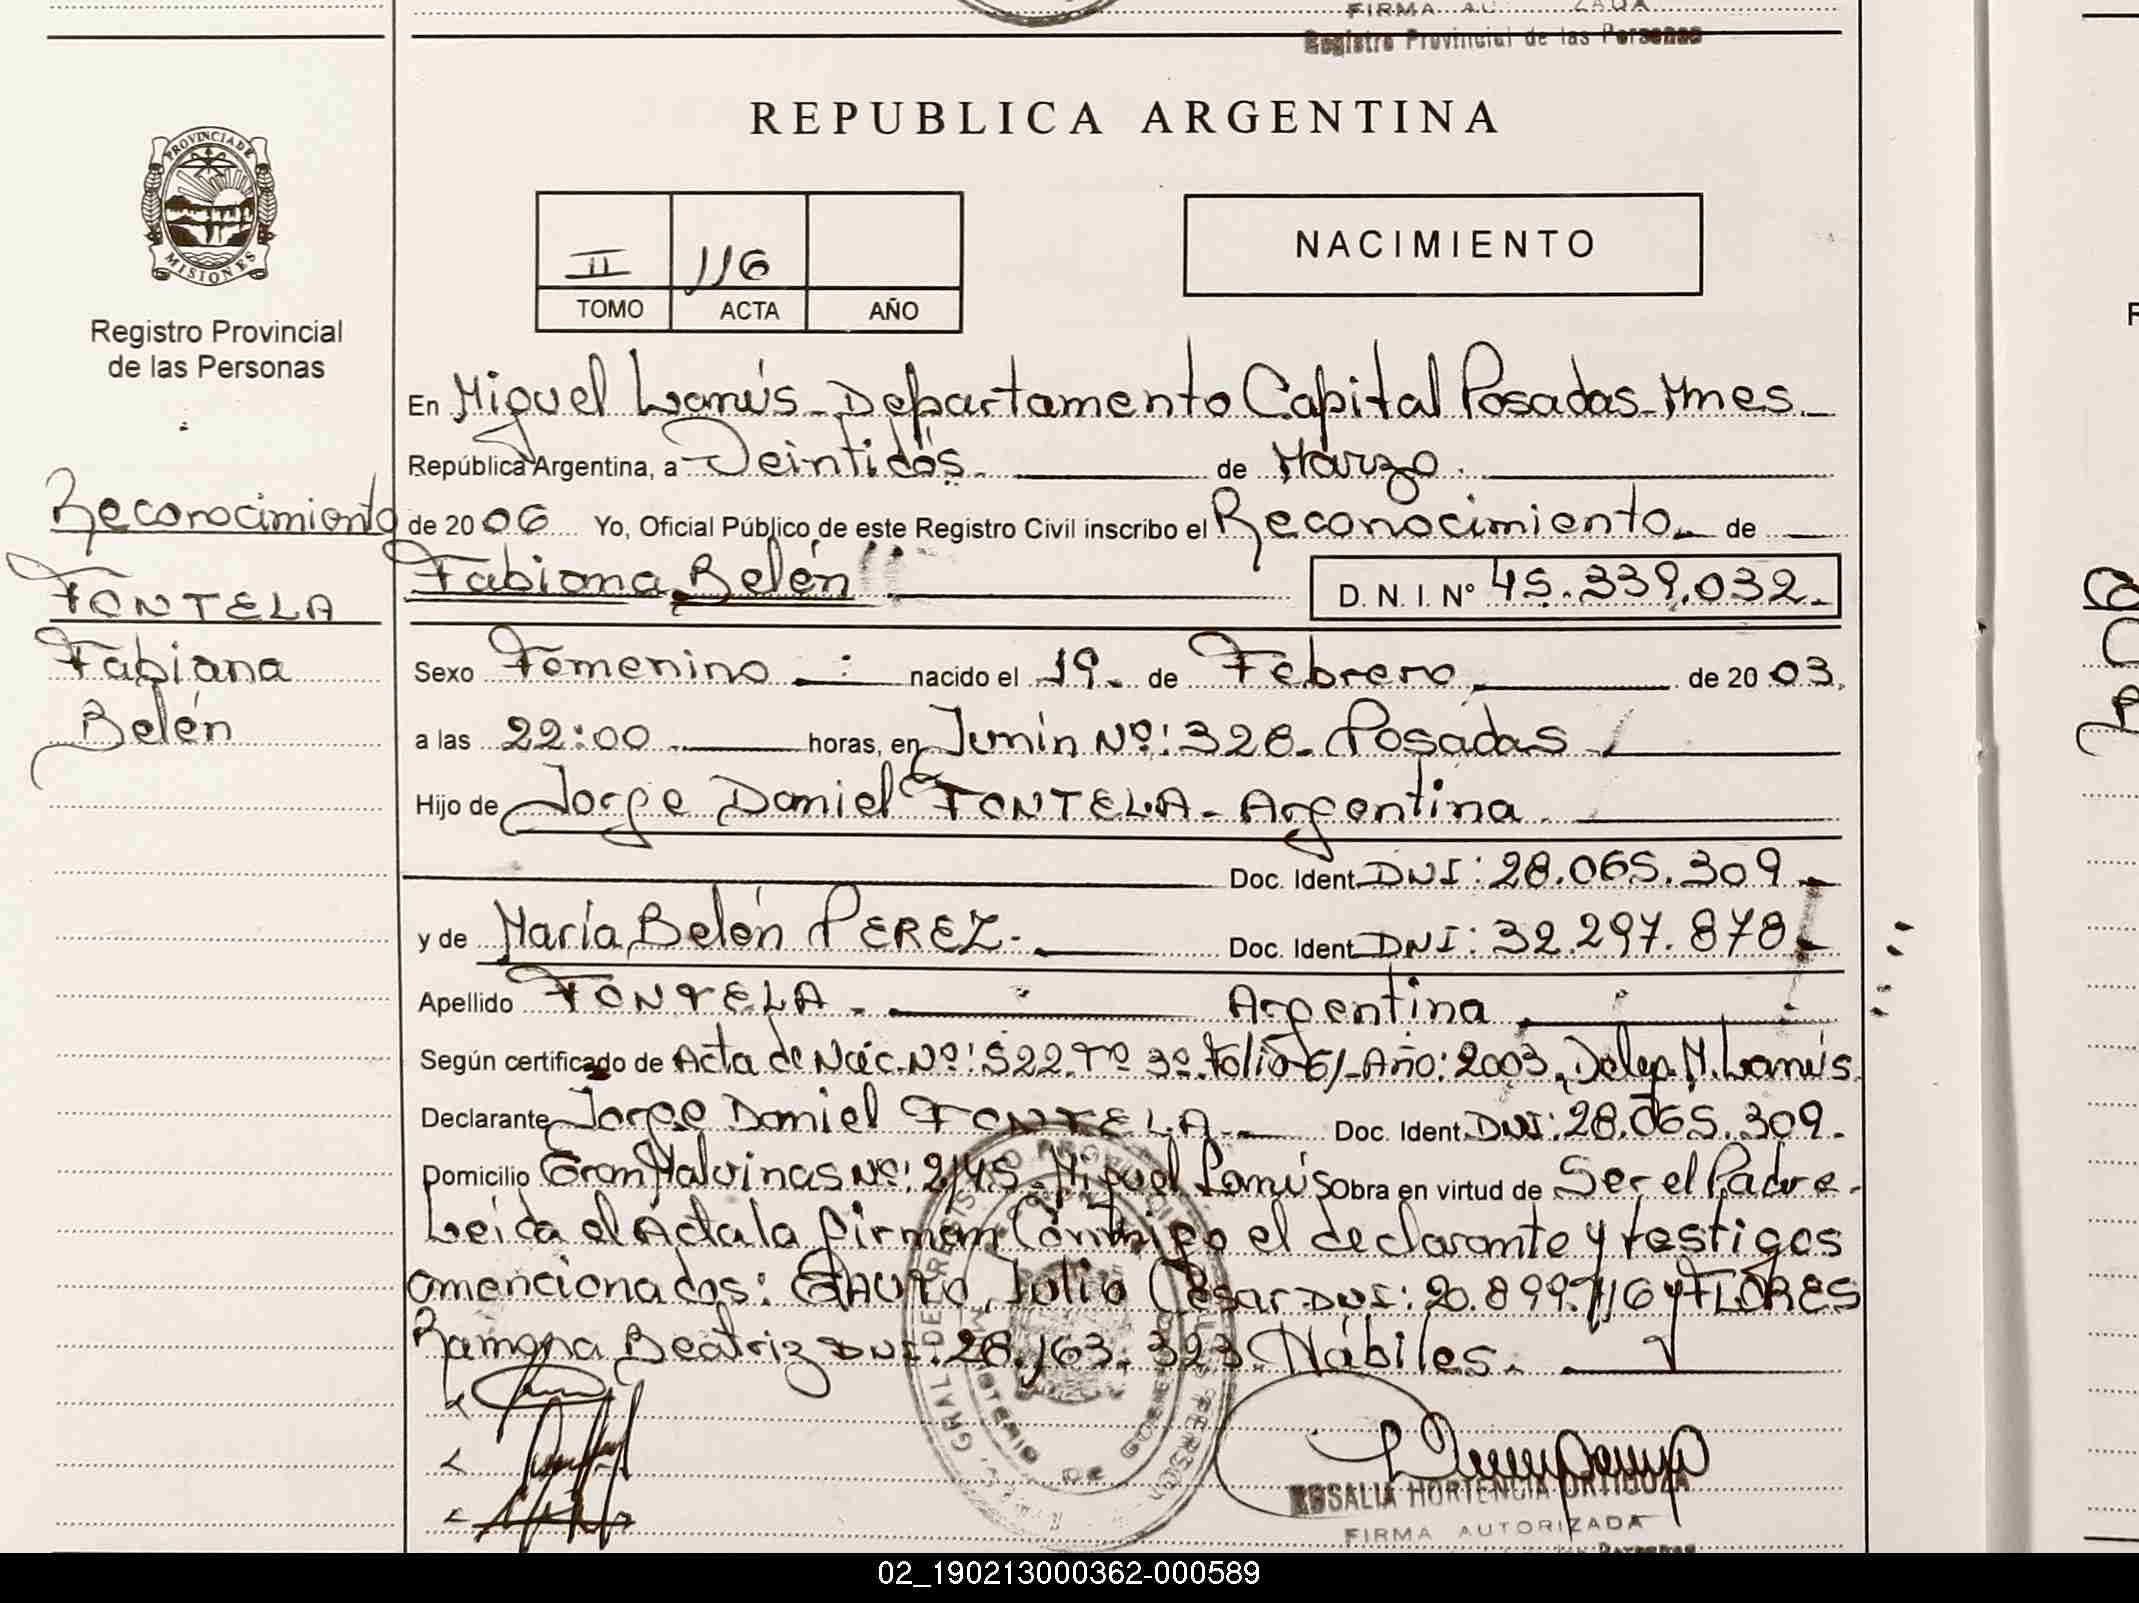 FIRMA AU ZADA
Registro Provincial de las Personas
REPUBLICA ARGENTINA
PROVINCIA DE
MISIONES
Registro Provincial
de las Personas
II 116
TOMO ACTA AÑO
NACIMIENTO
Reconocimiento
FONTELA
Fabiana
Belén
En Miguel Lanús - Departamento Capital Posadas - Mnes
República Argentina, a Veintidós de Marzo
de 20 06 Yo, Oficial Público de este Registro Civil inscribo el Reconocimiento de
Fabiana Belén D. N. I. N° 45.339.032
Sexo Femenino nacido el 19 de Febrero de 20 03
a las 22:00 horas, en Junín Nº: 328 - Posadas
Hijo de Jorge Daniel FONTELA - Argentina
Doc. Ident. DNI: 28.065.309
y de María Belén PEREZ - Doc. Ident. DNI: 32.297.878
Apellido FONTELA - Argentina
Según certificado de Acta de Nac. Nº: 522 Tº 3º Folio 61 - Año: 2003, Deleg. M. Lanús
Declarante Jorge Daniel FONTELA - Doc. Ident. DNI: 28.065.309
Domicilio Gran Malvinas Nº: 2145 - Miguel Lanús Obra en virtud de Ser el Padre
Leída el Acta la firman Conmigo el declarante y testigos
amencionados: GAUTO, Julio César DNI: 20.899.116 y FLORES
Ramona Beatriz DNI: 28.163.323 Hábiles.
ROSALIA HORTENCIA ORTIGOZA
FIRMA AUTORIZADA
02_190213000362-000589